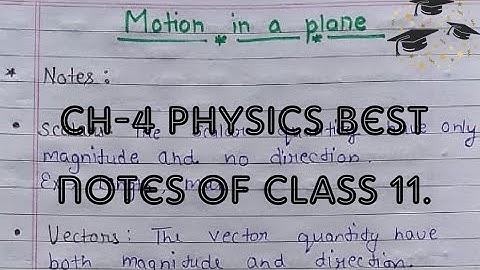 Motion in a plane
* Notes :
CH-4 PHYSICS BEST
• The scalar quantity have only
magnitude and no direction.
NOTES OF CLASS 11.
• Vectors : The vector quantity have
both magnitude and direction.